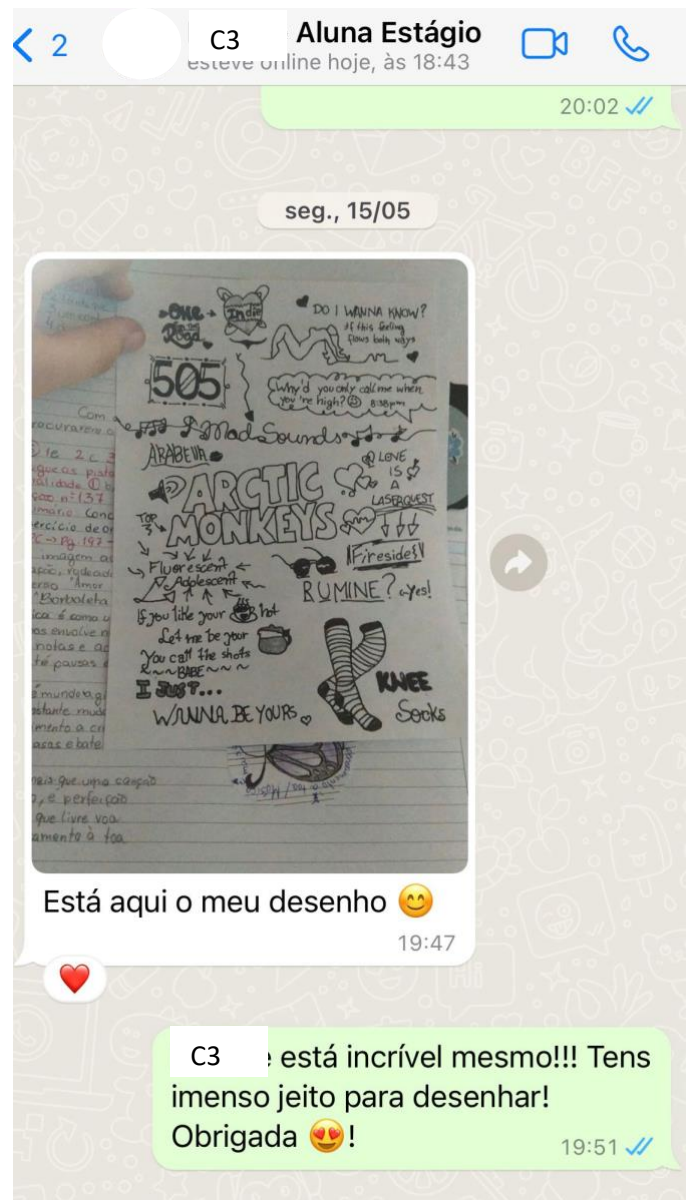 2
C3 Aluna Estágio
esteve online hoje, às 18:43
20:02
seg., 15/05
One For The Road
Indie
DO I WANNA KNOW?
If this feeling
flows both ways
505
Why'd you only call me when
you're high? 8:38pm
Mad Sounds
ARABELLA
ARCTIC
MONKEYS
LOVE
IS
A
LASERQUEST
TOP
Fireside
Fluorescent
Adolescent
R U MINE? Yes!
If you like your hot
Let me be your
You call the shots
BABE
I JUST...
WANNA BE YOURS
KNEE
Socks
Com
imagem
"Borboleta
notas e
pausas
mais que uma canção
e perfeição
que livre voa
Está aqui o meu desenho 😊
19:47
C3 está incrível mesmo!!! Tens
imenso jeito para desenhar!
Obrigada 😍!
19:51